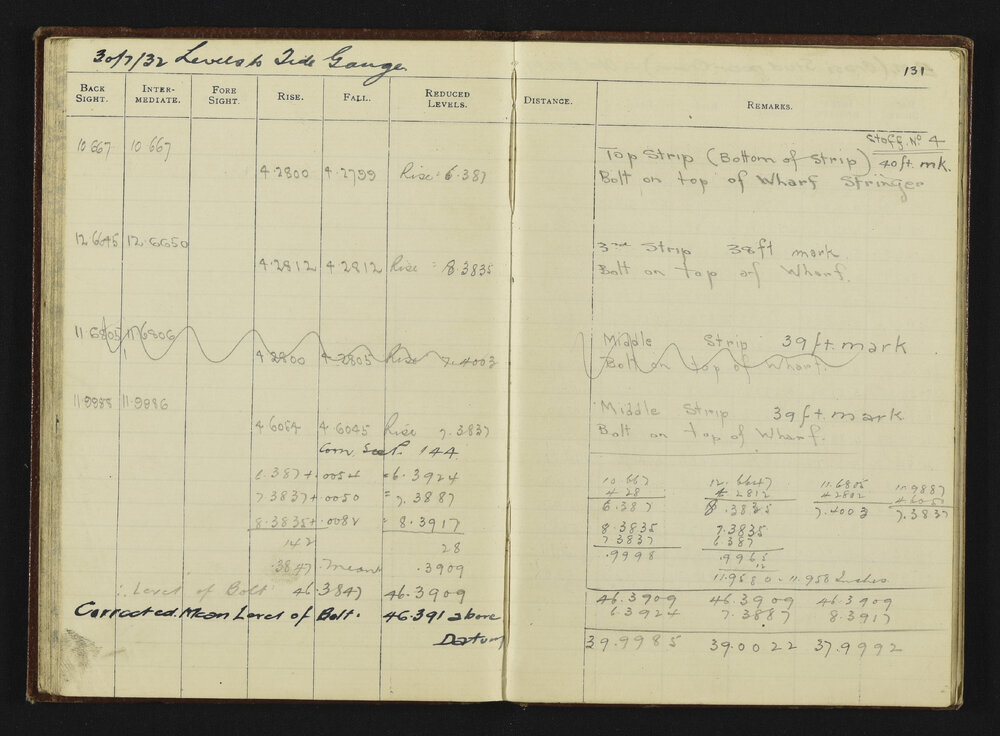 30/7/32 Levels to Tide Gauge.
131
BACK SIGHT. INTER-MEDIATE. FORE SIGHT. RISE. FALL. REDUCED LEVELS. DISTANCE. REMARKS.
Staff. No 4
10.667 10.667 Top Strip (Bottom of Strip) 40ft. mk.
4.2800 4.2799 Rise = 6.387 Bolt on top of Wharf Stringer
12.6645 12.6650 3rd Strip 38ft mark
4.2812 4.2812 Rise = 8.3835 Bolt on top of Wharf.
11.6805 11.6806 Middle Strip 39ft. mark
4.2800 4.2805 Rise 7.4003 Bolt on top of Wharf.
11.9988 11.9886 Middle Strip 39ft. mark
4.6064 4.6045 Rise 7.3837 Bolt on top of Wharf.
Corrn. 144
6.387+ .0054 =6.3924
7.3837+ .0050 = 7.3887
8.3835+ .0082 = 8.3917
142 28
.3847 mean .3909
∴ Level of Bolt 46.3847 46.3909
Corrected Mean Level of Bolt. 46.391 above
Datum
10.667 12.6647 11.6805 11.9887
4.28 4.2812 4.2802 4.6050
6.387 8.3835 7.4003 7.3837
8.3835 7.3835
7.3837 6.387
.9998 .9965
12
11.9580 = 11.958 Inches
46.3909 46.3909 46.3909
6.3924 7.3887 8.3917
39.9985 39.0022 37.9992